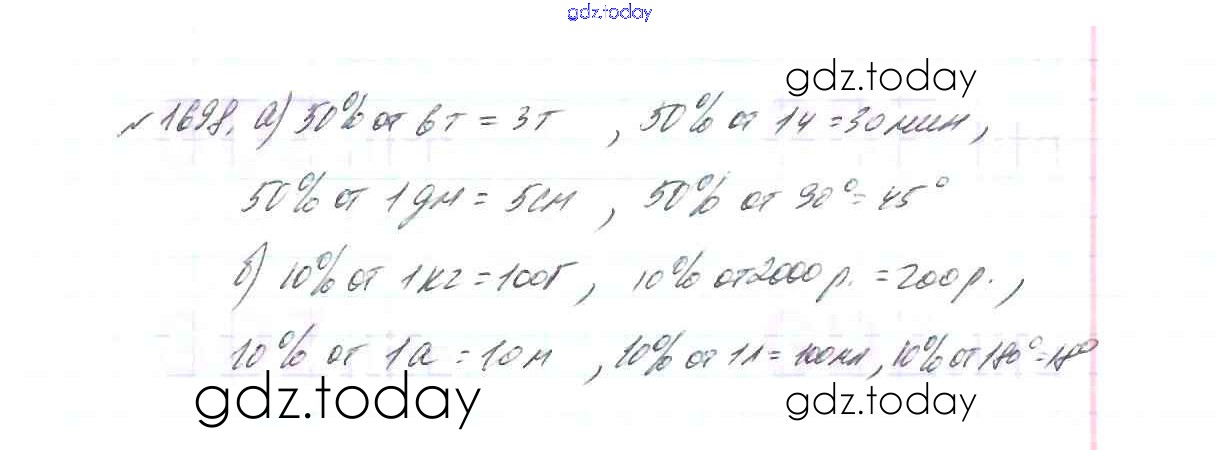 gdz.today
gdz.today
№1698. а) 50% от 6 т = 3 т , 50% от 1 ч = 30 мин ,
50% от 1 дм = 5 см , 50% от 90° = 45°
б) 10% от 1 кг = 100 г , 10% от 2000 р. = 200 р. ,
10% от 1 а = 10 м , 10% от 1 л = 100 мл , 10% от 180° = 18°
gdz.today gdz.today